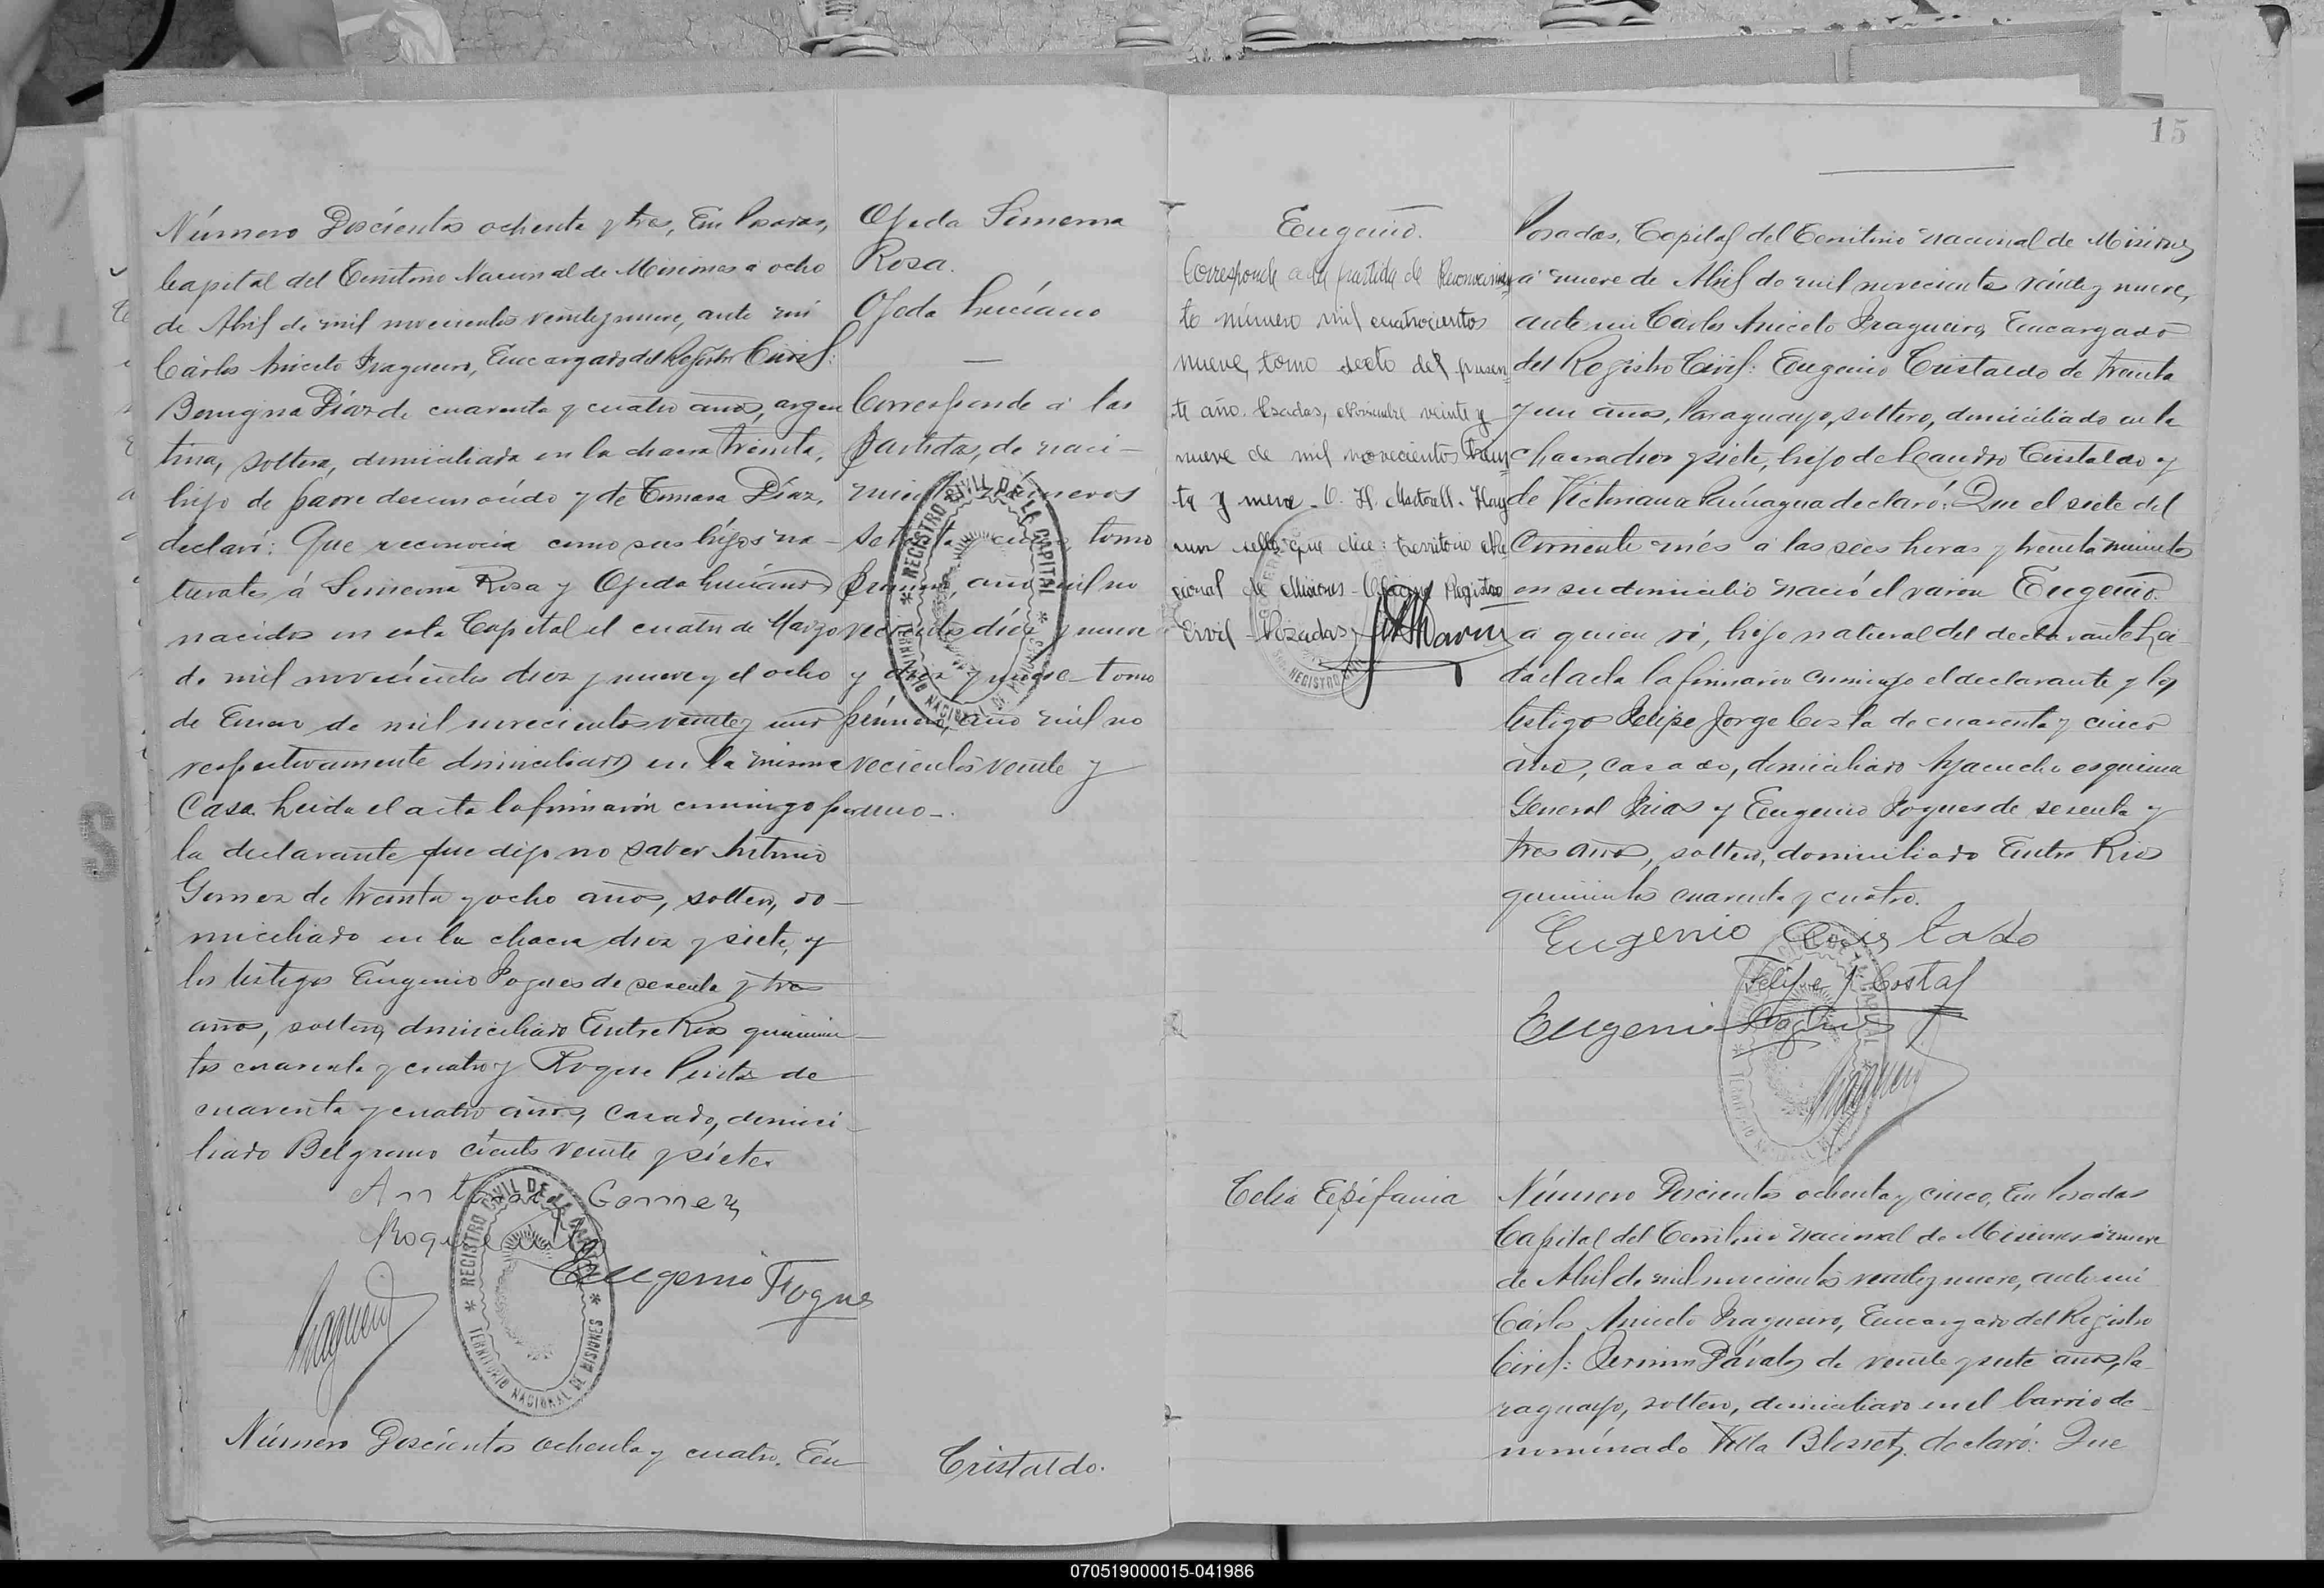 Número Doscientos ochenta y tres, En Posadas,
Capital del Territorio Nacional de Misiones a ocho
de Abril de mil novecientos veinte y nueve, ante mi
Cárlos Aniceto Fragueiro, Encargado del Registro Civil:
Benigna Díaz de cuarenta y cuatro años, argen
tina, soltera, domiciliada en la chacra treinta,
hija de padre desconocido y de Tomasa Díaz,
declaró: Que reconocia como sus hijos na-
turales á Simeona Rosa y Ojeda Luciano
nacidos en esta Capital el cuatro de Marzo
de mil novecientos diez y nueve y el ocho
de Enero de mil novecientos veinte y uno
respectivamente domiciliados en la misma
Casa. Leida el acta la firmarón conmigo por
la declarante que dijo no saber Antonio
Gomez de treinta y ocho años, soltero, do-
miciliado en la chacra diez y siete, y
los testigos Eugenio Fogues de sesenta y tres
años, soltero, domiciliado Entre Rios quinien-
tos cuarenta y cuatro y Roque de
cuarenta y cuatro años, casado, domici-
liado Belgrano ciento veinte y siete.
Antonio Gomez
Roque
Eugenio Fogues
REGISTRO CIVIL DE LA CAPITAL
TERRITORIO NACIONAL DE MISIONES
Número Doscientos ochenta y cuatro. En
Ojeda Simeona
Rosa.
Ojeda Luciano
Corresponde á las
partidas, de naci-
miento números
tomo
primero, año mil no
vecientos diez y nueve
y diez y nueve tomo
primero, año mil no
vecientos veinte y
uno-.
REGISTRO CIVIL DE LA CAPITAL
TERRITORIO NACIONAL DE MISIONES
Cristaldo.
15
Eugenio.
Corresponde a la partida de Reconocimien
to número mil cuatrocientos
nueve, tomo sexto del presen
te año. Posadas, Noviembre veinte y
nueve de mil novecientos trein
ta y nueve - Hay
un sello que dice: Territorio Na
cional de Misiones - Registro
Civil - Posadas
Posadas, Capital del Territorio Nacional de Misiones
á nueve de Abril de mil novecientos veinte y nueve,
ante mi Carlos Aniceto Fragueiro, Encargado
del Registro Civil: Eugenio Cristaldo de treinta
y un años, Paraguayo, soltero, domiciliado en la
chacra diez y siete, hijo de Leandro Cristaldo y
de Victoriana declaró: Que el siete del
Corriente més á las seis horas y treinta minutos
en su domicilio nació el varón Eugenio.
a quien ví, hijo natural del declarante. Lei
da el acta la firmaron conmigo el declarante y los
testigos Felipe Jorge Costa de cuarenta y cinco
años, casado, domiciliado Ayacucho esquina
General Frias y Eugenio Fogues de sesenta y
tres años, soltero, domiciliado Entre Rios
quinientos cuarenta y cuatro.
Eugenio Cristaldo
Felipe J. Costa
Eugenio Fogues
Celia Epifania
Número Doscientos ochenta y cinco, En Posadas
Capital del Territorio Nacional de Misiones a nueve
de Abril de mil novecientos veinte y nueve, ante mi
Cárlos Aniceto Fragueiro, Encargado del Registro
Civil: Fermin Dávalos de veinte y siete años, Pa-
raguayo, soltero, domiciliado en el barrio de
nominado Villa Blosset, declaró: Que
070519000015-041986